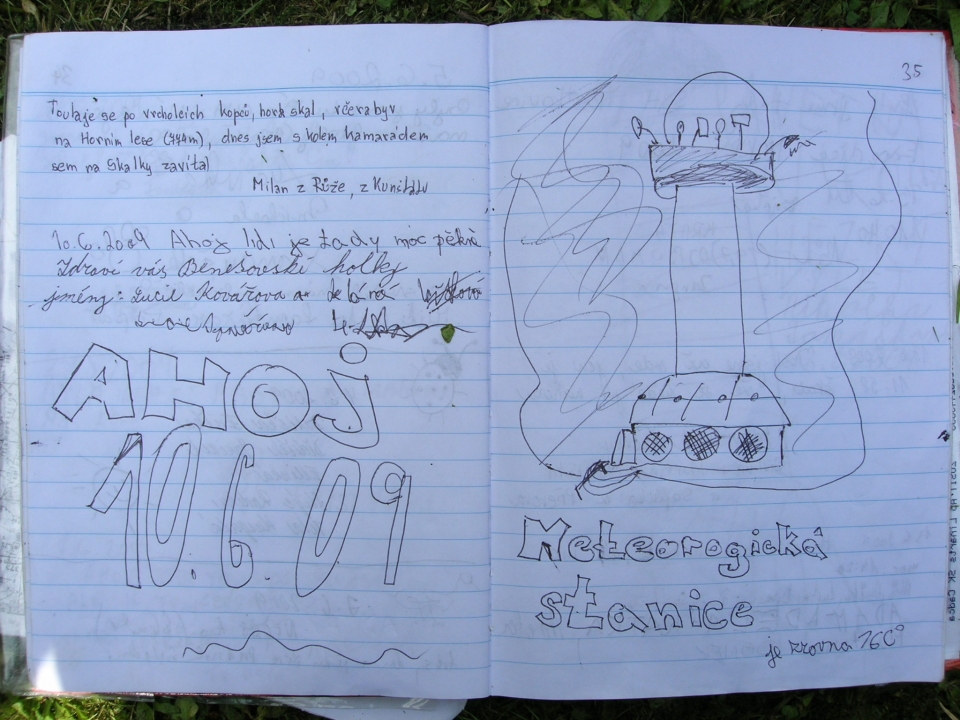 Toulaje se po vrcholcích kopců, hor a skal, včera byv
na Horním lese (774m), dnes jsem s kolem kamarádem
sem na Skalky zavítal
Milan z Růže, z Kunštátu
10.6.2009 Ahoj lidi je tady moc pěkně
Zdraví vás Benešovski holky
jmény: Lucie Kovářova a
AHOJ
10.6.09
35
Meteorogická
stanice
je zrovna 16C°